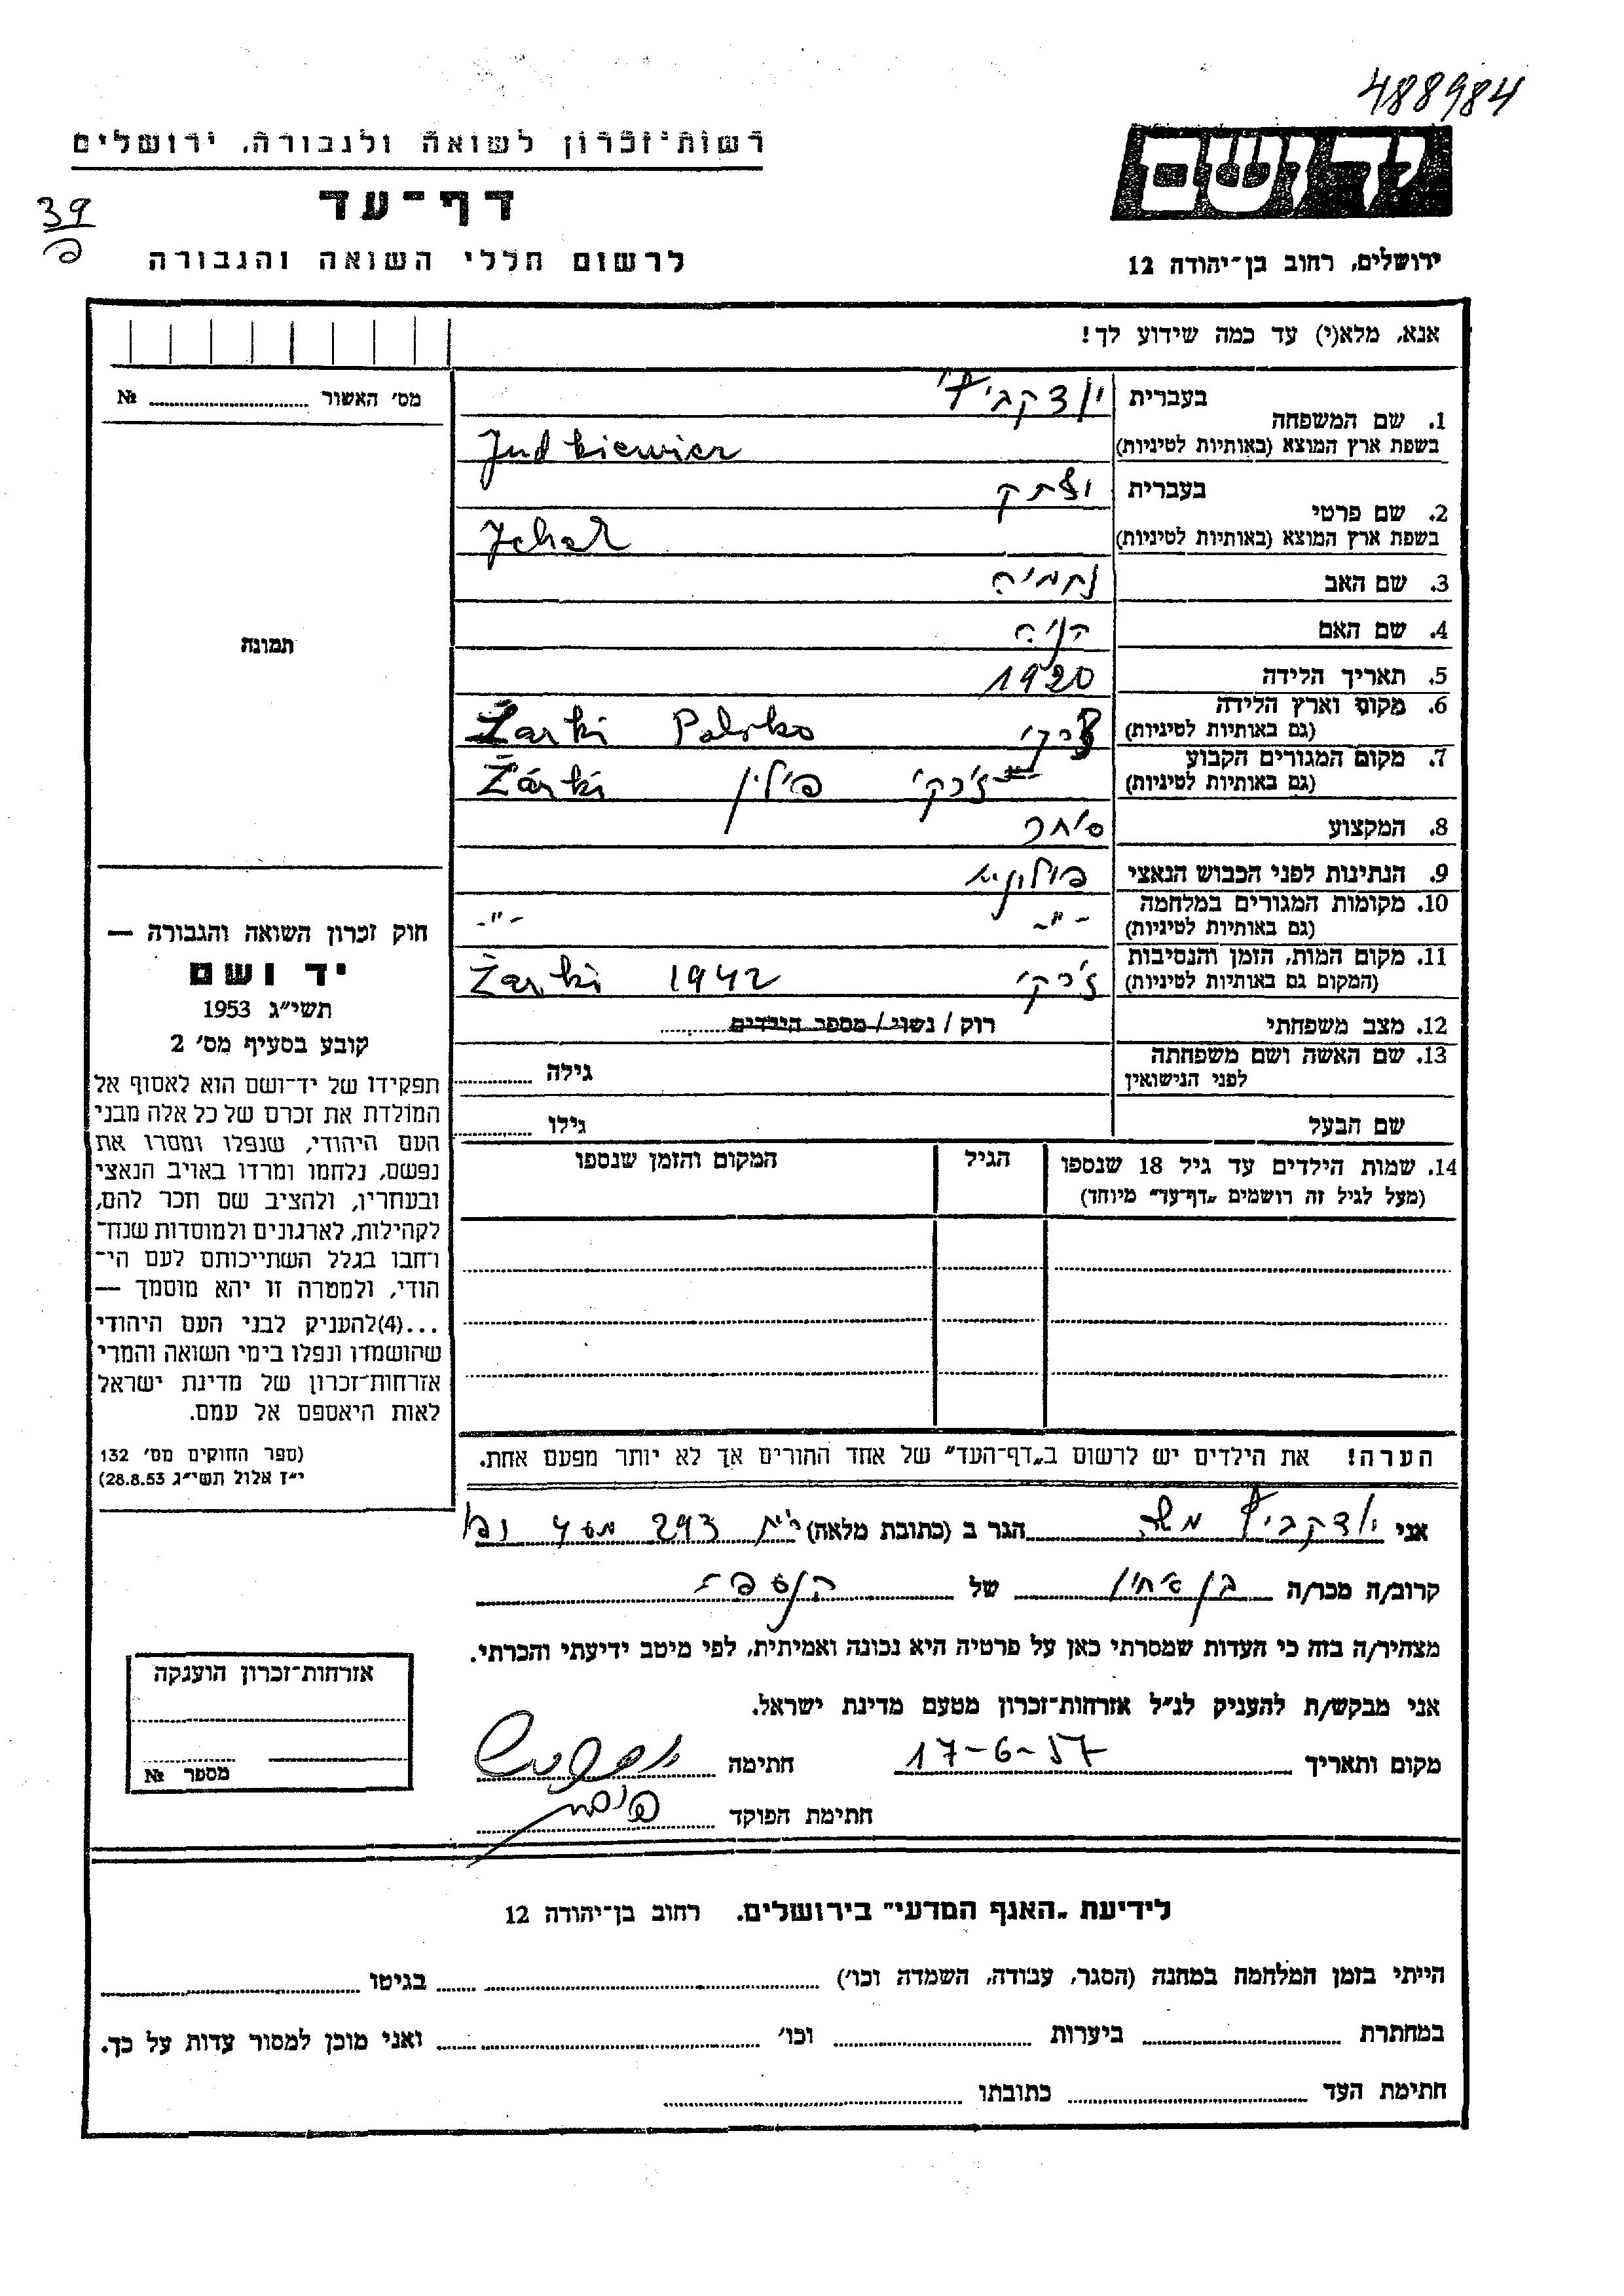 488984
רשות־זכרון לשואה ולגבורה, ירושלים
ידושם
דף־עד
39
לרשום חללי השואה והגבורה
ירושלים, רחוב בן־יהודה 12
אנא, מלא(י) עד כמה שידוע לך!
מס׳ האשור № 
1. שם המשפחה בעברית יודקביץ'
בשפת ארץ המוצא (באותיות לטיניות) Judkiewicz
2. שם פרטי בעברית יצחק
בשפת ארץ המוצא (באותיות לטיניות) Jchak
3. שם האב נחמיה
4. שם האם
תמונה
5. תאריך הלידה 1920
6. מקום וארץ הלידה (גם באותיות לטיניות) ז'רקי Żarki Polska
7. מקום המגורים הקבוע (גם באותיות לטיניות) ז'רקי פולין Żarki
8. המקצוע סוחר
9. הנתינות לפני הכבוש הנאצי פולנית
10. מקומות המגורים במלחמה (גם באותיות לטיניות) -"- -"-
11. מקום המות, הזמן והנסיבות (המקום גם באותיות לטיניות) ז'רקי 1942 Żarki
12. מצב משפחתי רוק / נשוי / מספר הילדים
13. שם האשה ושם משפחתה לפני הנישואין גילה
שם הבעל גילו
14. שמות הילדים עד גיל 18 שנספו הגיל המקום והזמן שנספו
(מעל לגיל זה רושמים „דף־עד" מיוחד)
חוק זכרון השואה והגבורה —
יד ושם
תשי״ג 1953
קובע בסעיף מס׳ 2
תפקידו של יד־ושם הוא לאסוף אל
המולדת את זכרם של כל אלה מבני
העם היהודי, שנפלו ומסרו את
נפשם, נלחמו ומרדו באויב הנאצי
ובעוזריו, ולהציב שם וזכר להם,
לקהילות, לארגונים ולמוסדות שנח־
רבו בגלל השתייכותם לעם הי־
הודי, ולמטרה זו יהא מוסמך —
...(4)להעניק לבני העם היהודי
שהושמדו ונפלו בימי השואה והמרי
אזרחות־זכרון של מדינת ישראל
לאות היאספם אל עמם.
(ספר החוקים מס׳ 132
י״ז אלול תשי״ג 28.8.53)
הערה! את הילדים יש לרשום ב„דף־העד" של אחד ההורים אך לא יותר מפעם אחת.
אני יודקביץ משה הגר ב (כתובת מלאה) 293
קרוב/ה מכר/ה בן אחיו של הנספה
מצהיר/ה בזה כי העדות שמסרתי כאן על פרטיה היא נכונה ואמיתית, לפי מיטב ידיעתי והכרתי.
אני מבקש/ת להעניק לנ״ל אזרחות־זכרון מטעם מדינת ישראל.
מקום ותאריך 17-6-57 חתימה
חתימת הפוקד
אזרחות־זכרון הוענקה
מספר №
לידיעת „האגף המדעי" בירושלים, רחוב בן־יהודה 12
הייתי בזמן המלחמה במחנה (הסגר, עבודה, השמדה וכו׳) בגיטו
במחתרת ביערות וכו׳ ואני מוכן למסור עדות על כך.
חתימת העד כתובתו